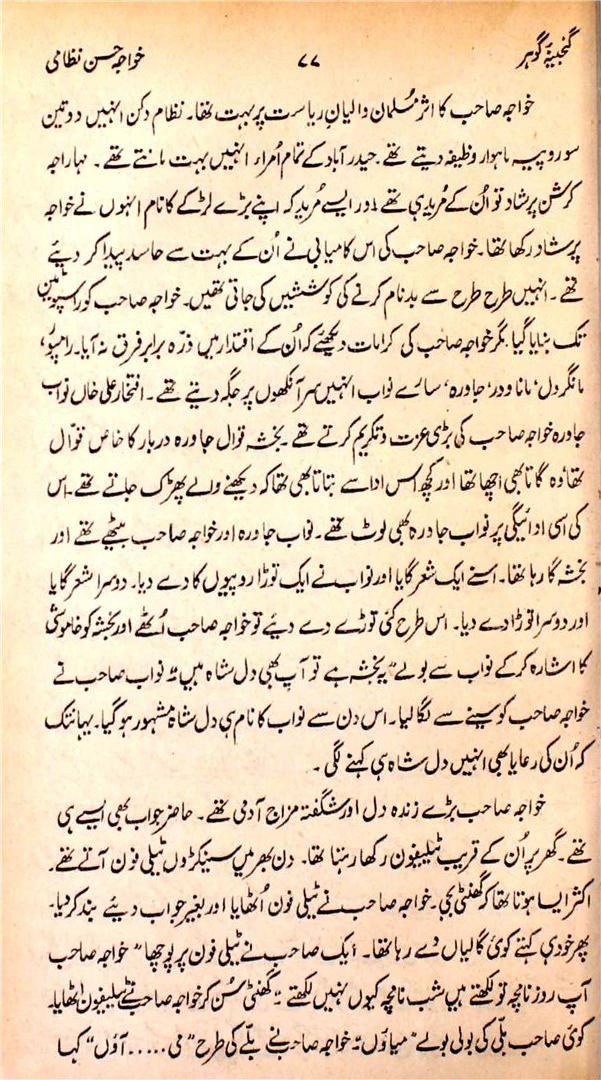 گنجینۂ گوہر ۷۷ خواجہ حسن نظامی
خواجہ صاحب کا اثر مُسلمان والیانِ ریاست پر بہت تھا۔ نظام دکن انہیں دو تین
سو روپیہ ماہوار وظیفہ دیتے تھے۔ حیدر آباد کے تمام اُمراء انہیں بہت مانتے تھے۔ مہاراجہ
کرشن پرشاد تو اُن کے مُرید ہی تھے اور ایسے مُرید کہ اپنے بڑے لڑکے کا نام انہوں نے خواجہ
پرشاد رکھا تھا۔ خواجہ صاحب کی اس کامیابی نے اُن کے بہت سے حاسد پیدا کر دیئے
تھے۔ انہیں طرح طرح سے بدنام کرنے کی کوششیں کی جاتی تھیں۔ خواجہ صاحب کو راسپوٹین
تک بنایا گیا مگر خواجہ صاحب کی کرامات دیکھئے کہ اُن کے اقتدار میں ذرّہ برابر فرق نہ آیا۔ رامپور،
مانگردل، ماناودر، جاورہ، سارے نواب انہیں سر آنکھوں پر جگہ دیتے تھے۔ افتخار علی خاں نواب
جاورہ خواجہ صاحب کی بڑی عزت و تکریم کرتے تھے۔ بخشہ قوال جاورہ دربار کا خاص قوّال
تھا، وہ گاتا بھی اچھا تھا اور کچھ اس ادا سے بتاتا بھی تھا کہ دیکھنے والے پھڑک جاتے تھے۔ اس
کی اسی ادائیگی پر نواب جاورہ بھی لوٹ تھے۔ نواب جاورہ اور خواجہ صاحب بیٹھے تھے اور
بخشہ گا رہا تھا۔ اسنے ایک شعر گایا اور نواب نے ایک توڑا روپیوں کا دے دیا۔ دوسرا شعر گایا
اور دوسرا توڑا دے دیا۔ اس طرح کئی توڑے دے دیئے تو خواجہ صاحب اُٹھے اور بخشہ کو خاموشی
کا اشارہ کر کے نواب سے بولے "یہ بخشہ ہے تو آپ بھی دل شاہ ہیں" نواب صاحب نے
خواجہ صاحب کو سینے سے لگا لیا۔ اس دن سے نواب کا نام ہی دل شاہ مشہور ہو گیا۔ یہانتک
کہ اُن کی رعایا بھی انہیں دل شاہ ہی کہنے لگی۔
خواجہ صاحب بڑے زندہ دل اور شگفتہ مزاج آدمی تھے۔ حاضر جواب بھی ایسے ہی
تھے۔ گھر پر اُن کے قریب ٹیلیفون رکھا رہتا تھا۔ دن بھر میں سینکڑوں ٹیلی فون آتے تھے۔
اکثر ایسا ہوتا تھا کہ گھنٹی بجی۔ خواجہ صاحب نے ٹیلی فون اُٹھایا اور بغیر جواب دیئے بند کر دیا۔
پھر خود ہی کہتے کوئی گالیاں دے رہا تھا۔ ایک صاحب نے ٹیلی فون پر پوچھا "خواجہ صاحب
آپ روزنامچہ تو لکھتے ہیں شب نامچہ کیوں نہیں لکھتے" گھنٹی سُن کر خواجہ صاحب نے ٹیلیفون اٹھایا۔
کوئی صاحب بلّی کی بولی بولے "میاؤں" خواجہ صاحب نے بلّے کی طرح "می.....آؤں" کہا